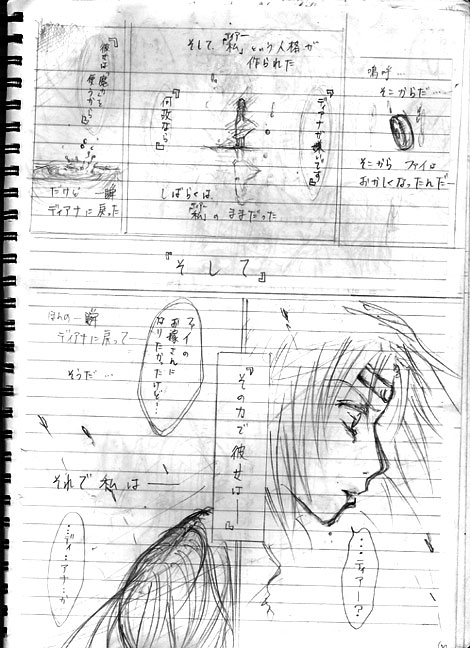 嗚呼…
そこからだ…
そこから ファイは
おかしくなったんだ―
そして『私』という人格が
作られた
ディアナが嫌いです』
何故なら
しばらくは、
『私』のままだった
『彼女は魔力を
使うから』
だけど 一瞬
ディアナに戻った
『そして』
…ディアー…?
『その力で彼女は―』
ファイの
お嫁さんに
なりたかったけど…
ほんの一瞬
ディアナに戻って―
そうだ…
それで私は――
…ディ…アナ…か